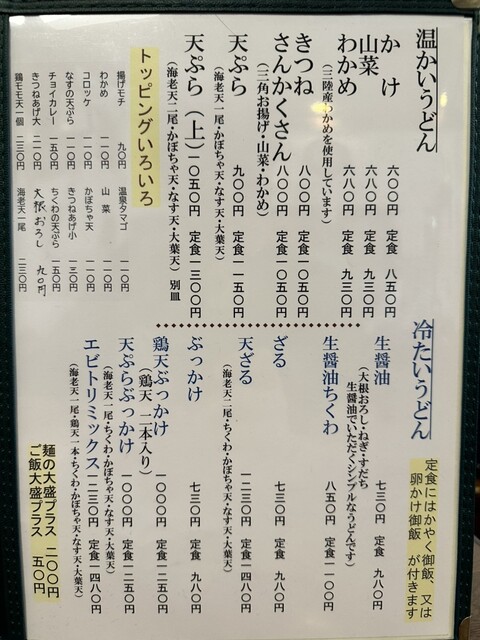 温かいうどん
かけ 六〇〇円 定食 八五〇円
山菜 六八〇円 定食 九三〇円
わかめ 六八〇円 定食 九三〇円
(三陸産わかめを使用しています)
きつね 八〇〇円 定食 一〇五〇円
さんかくさん 八〇〇円 定食 一〇五〇円
(三角お揚げ・山菜・わかめ)
天ぷら 九〇〇円 定食 一一五〇円
(海老天一尾・かぼちゃ天・なす天・大葉天)
天ぷら(上) 一〇五〇円 定食 一三〇〇円
(海老天二尾・かぼちゃ天・なす天・大葉天) 別皿
トッピングいろいろ
揚げモチ 九〇円
わかめ 一一〇円
コロッケ 一一〇円
なすの天ぷら 一一〇円
チョイカレー 一五〇円
きつねあげ大 二一〇円
鶏モモ天一個 二三〇円
温泉タマゴ 一一〇円
山菜 一一〇円
かぼちゃ天 一一〇円
きつねあげ小 一三〇円
ちくわの天ぷら 一五〇円
大根おろし 九〇円
海老天一尾 二三〇円
冷たいうどん
定食にはかやく御飯、又は
卵かけ御飯 が付きます
生醤油 七三〇円 定食 九八〇円
(大根おろし・ねぎ・すだち
生醤油でいただくシンプルなうどんです)
生醤油ちくわ 八五〇円 定食 一一〇〇円
ざる 七三〇円 定食 九八〇円
天ざる 一二三〇円 定食 一四八〇円
(海老天二尾・ちくわ・かぼちゃ天・なす天・大葉天)
ぶっかけ 七三〇円 定食 九八〇円
鶏天ぶっかけ 一〇〇〇円 定食 一二五〇円
(鶏天 二本入り)
天ぷらぶっかけ 一〇〇〇円 定食 一二五〇円
(海老天一尾・ちくわ・かぼちゃ天・なす天・大葉天)
エビトリミックス 一二三〇円 定食 一四八〇円
(海老天一尾・鶏天一本・ちくわ・かぼちゃ天・なす天・大葉天)
麺の大盛プラス 二〇〇円
ご飯大盛プラス 五〇円